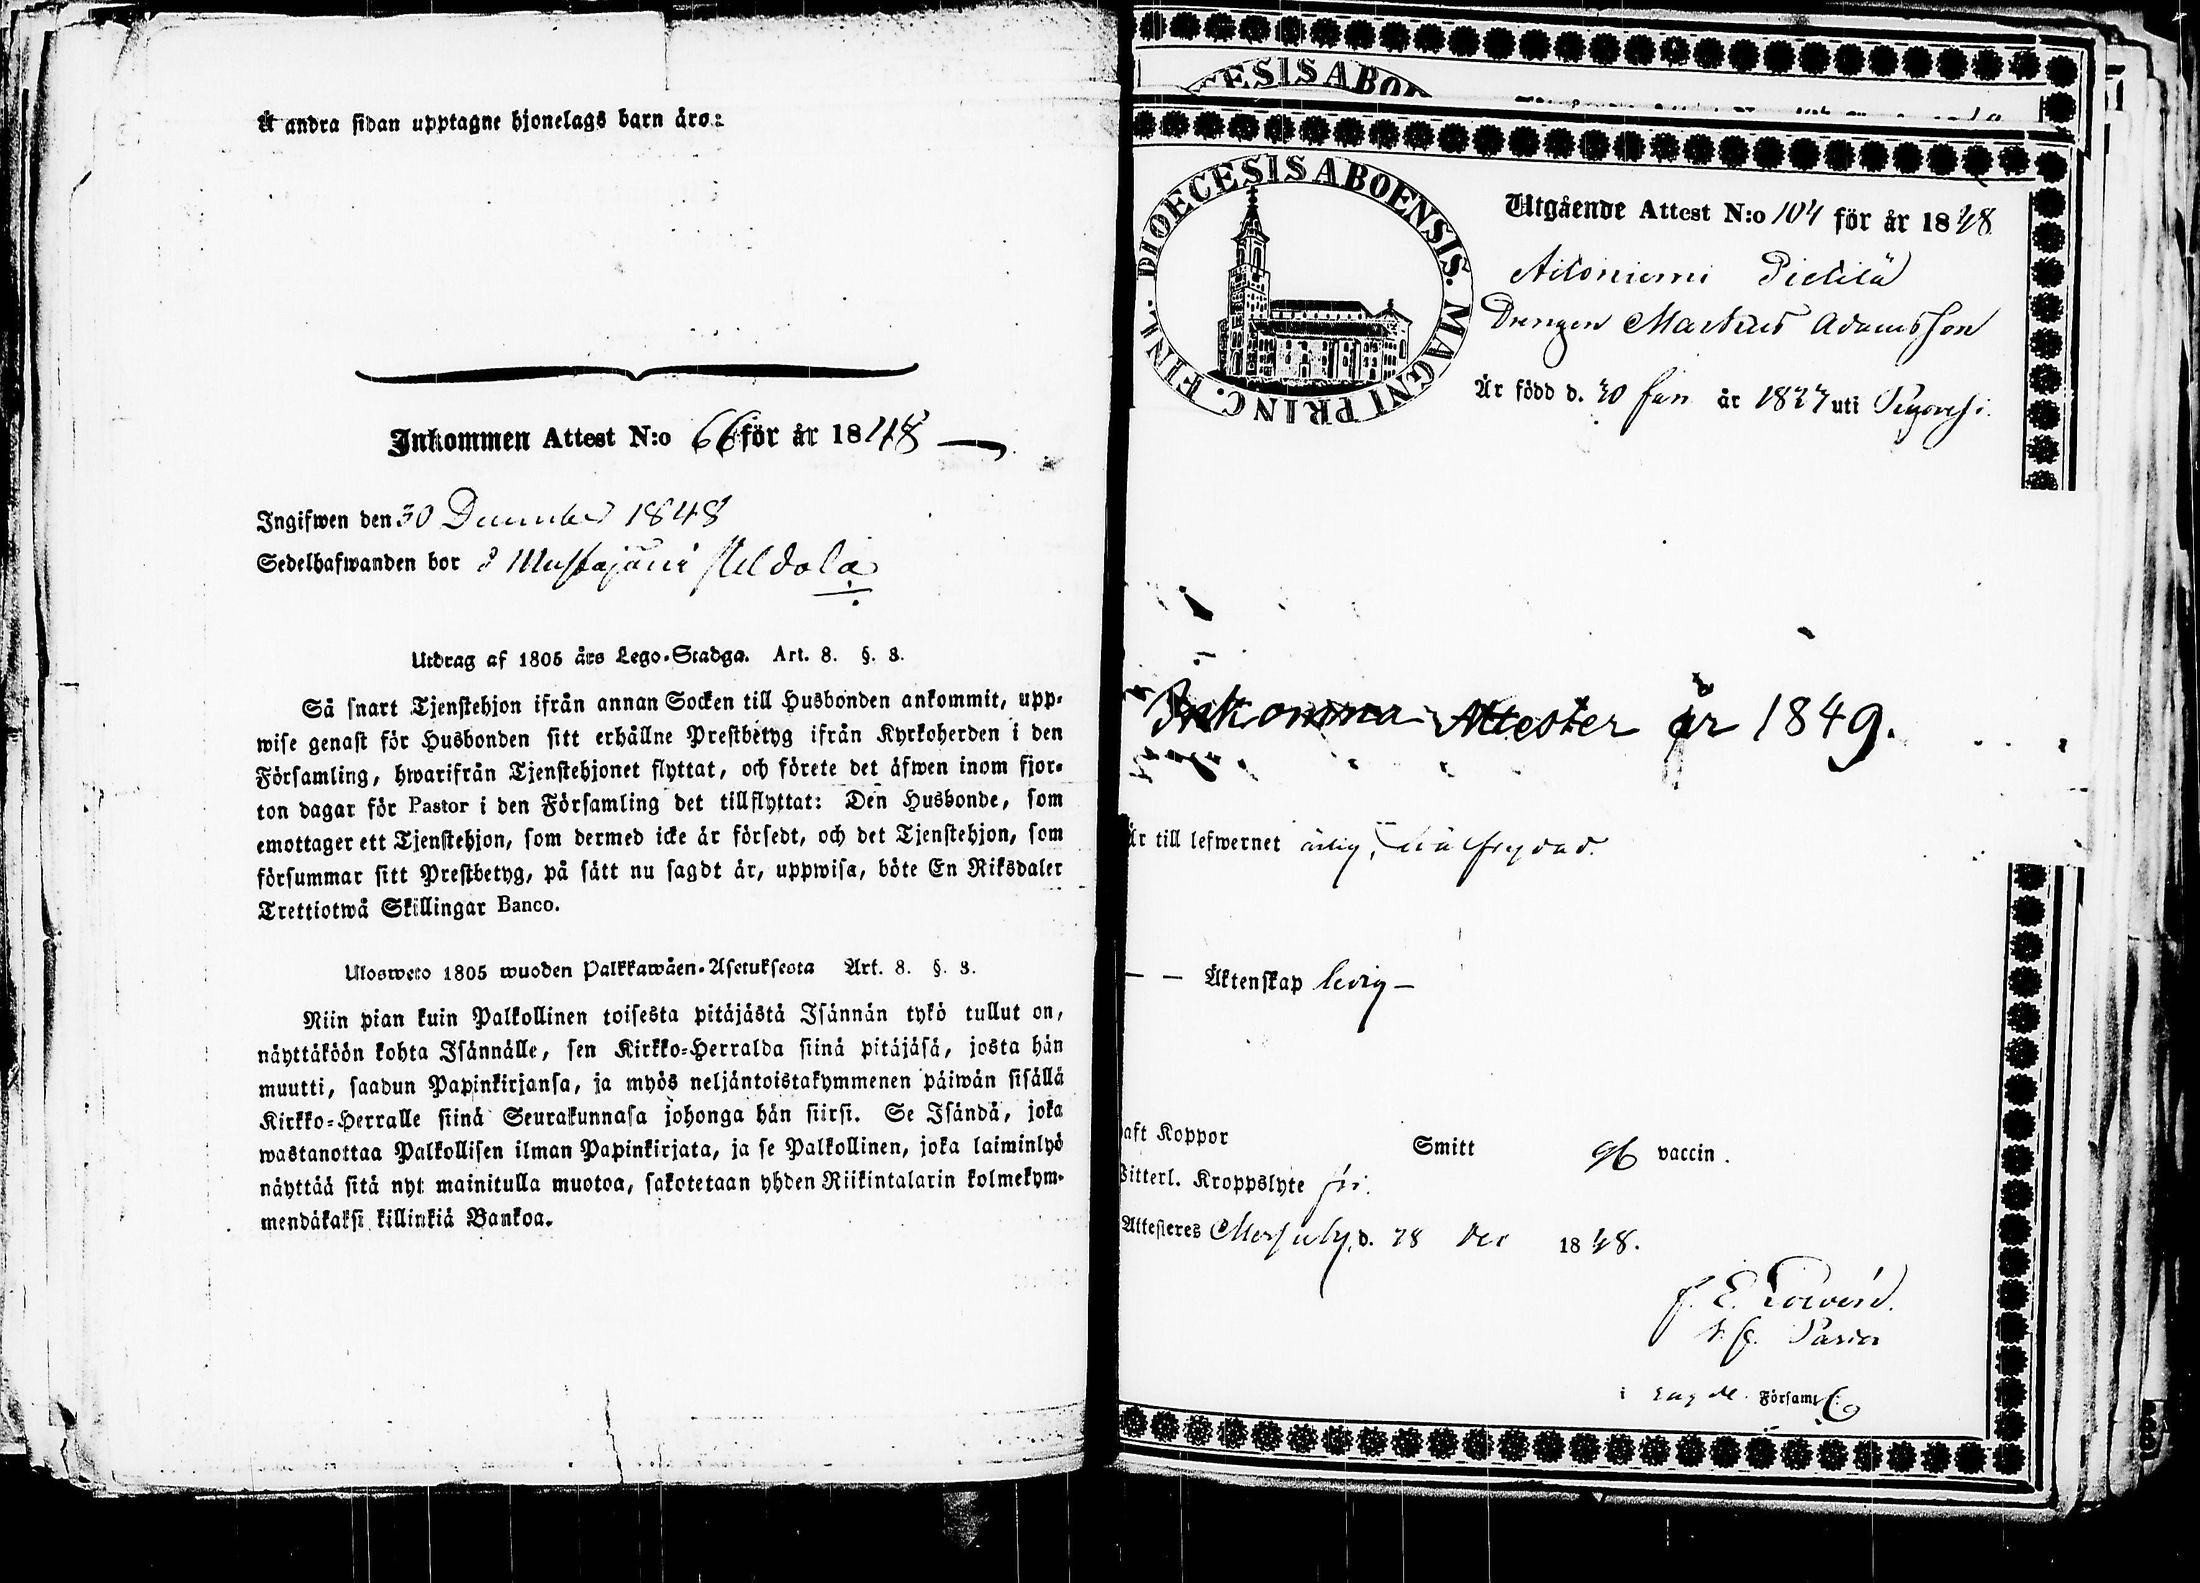 Å andra sidan upptagne hjonelags barn äro:
Inkommen Attest N:o 66 för år 1848
Ingifwen den 30 December 1848
Sedelhafwanden bor i
Utdrag af 1805 års Lego-Stadga. Art. 8. §. 3.
Så snart Tjenstehjon ifrån annan Socken till Husbonden ankommit, upp-
wise genast för Husbonden sitt erhållne Prestbetyg ifrån Kyrkoherden i den
Församling, hwarifrån Tjenstehjonet flyttat, och förete det äfwen inom fjor-
ton dagar för Pastor i den Församling det tillflyttat: Den Husbonde, som
emottager ett Tjenstehjon, som dermed icke är försedt, och det Tjenstehjon, som
försummar sitt Prestbetyg, på sätt nu sagdt är, uppwisa, böte En Riksdaler
Trettiotwå Skillingar Banco.
Ulosweto 1805 wuoden Palkkawäen-Asetuksesta Art. 8. §. 3.
Niin pian kuin Palkollinen toisesta pitäjästä Isännän tykö tullut on,
näyttäköön kohta Isännälle, sen Kirkko-Herralda siinä pitäjäsä, josta hän
muutti, saadun Papinkirjansa, ja myös neljäntoistakymmenen päiwän sisällä
Kirkko-Herralle siinä Seurakunnasa johonga hän siirsi. Se Isändä, joka
wastanottaa Palkollisen ilman Papinkirjata, ja se Palkollinen, joka laiminlyö
näyttää sitä nyt mainitulla muotoa, sakotetaan yhden Riikintalarin kolmekym-
mendäkaksi killinkiä Bankoa.
ESIS ABO
DIOECESIS ABOENSIS. MAGNI PRINC. FINL.
Utgående Attest N:o 104 för år 1848
Pietilä
Drengen Adamsson
Är född d. 30 Jan år uti
Inkomna Attester år 1849.
Är till lefwernet ärlig,
— — Äktenskap ledig —
haft Koppor Smitt vaccin.
Witterl. Kroppslyte fri.
Attesteres d. 28 Dec 1848.
i Församl